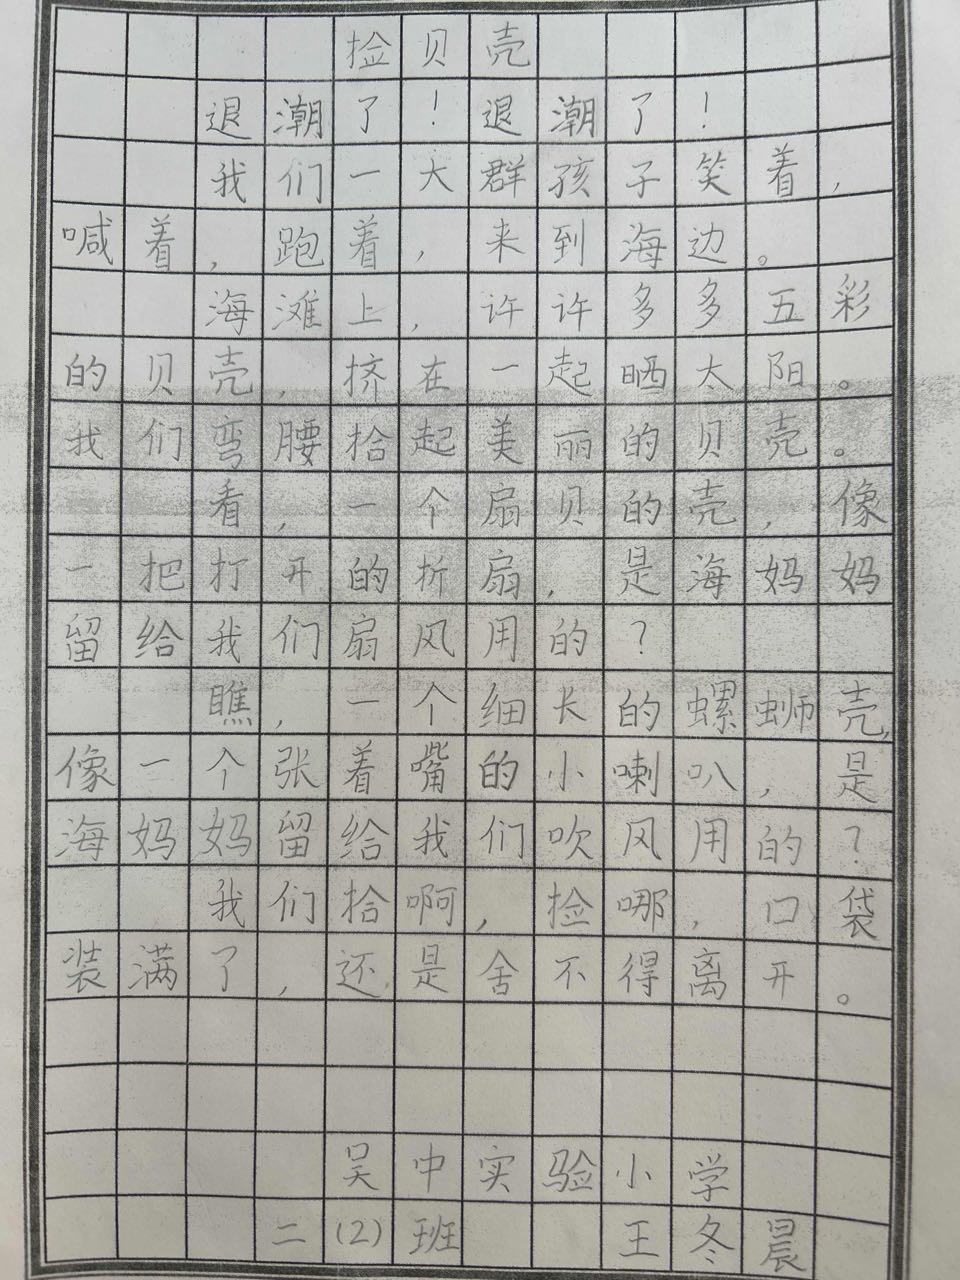 捡贝壳
退潮了！退潮了！
我们一大群孩子笑着，
喊着，跑着，来到海边。
海滩上，许许多多五彩
的贝壳，挤在一起晒太阳。
我们弯腰拾起美丽的贝壳。
看，一个扇贝的壳，像
一把打开的折扇，是海妈妈
留给我们扇风用的？
瞧，一个细长的螺蛳壳，
像一个张着嘴的小喇叭，是
海妈妈留给我们吹风用的？
我们拾啊，捡哪，口袋
装满了，还是舍不得离开。
吴中实验小学
二(2)班 王冬晨